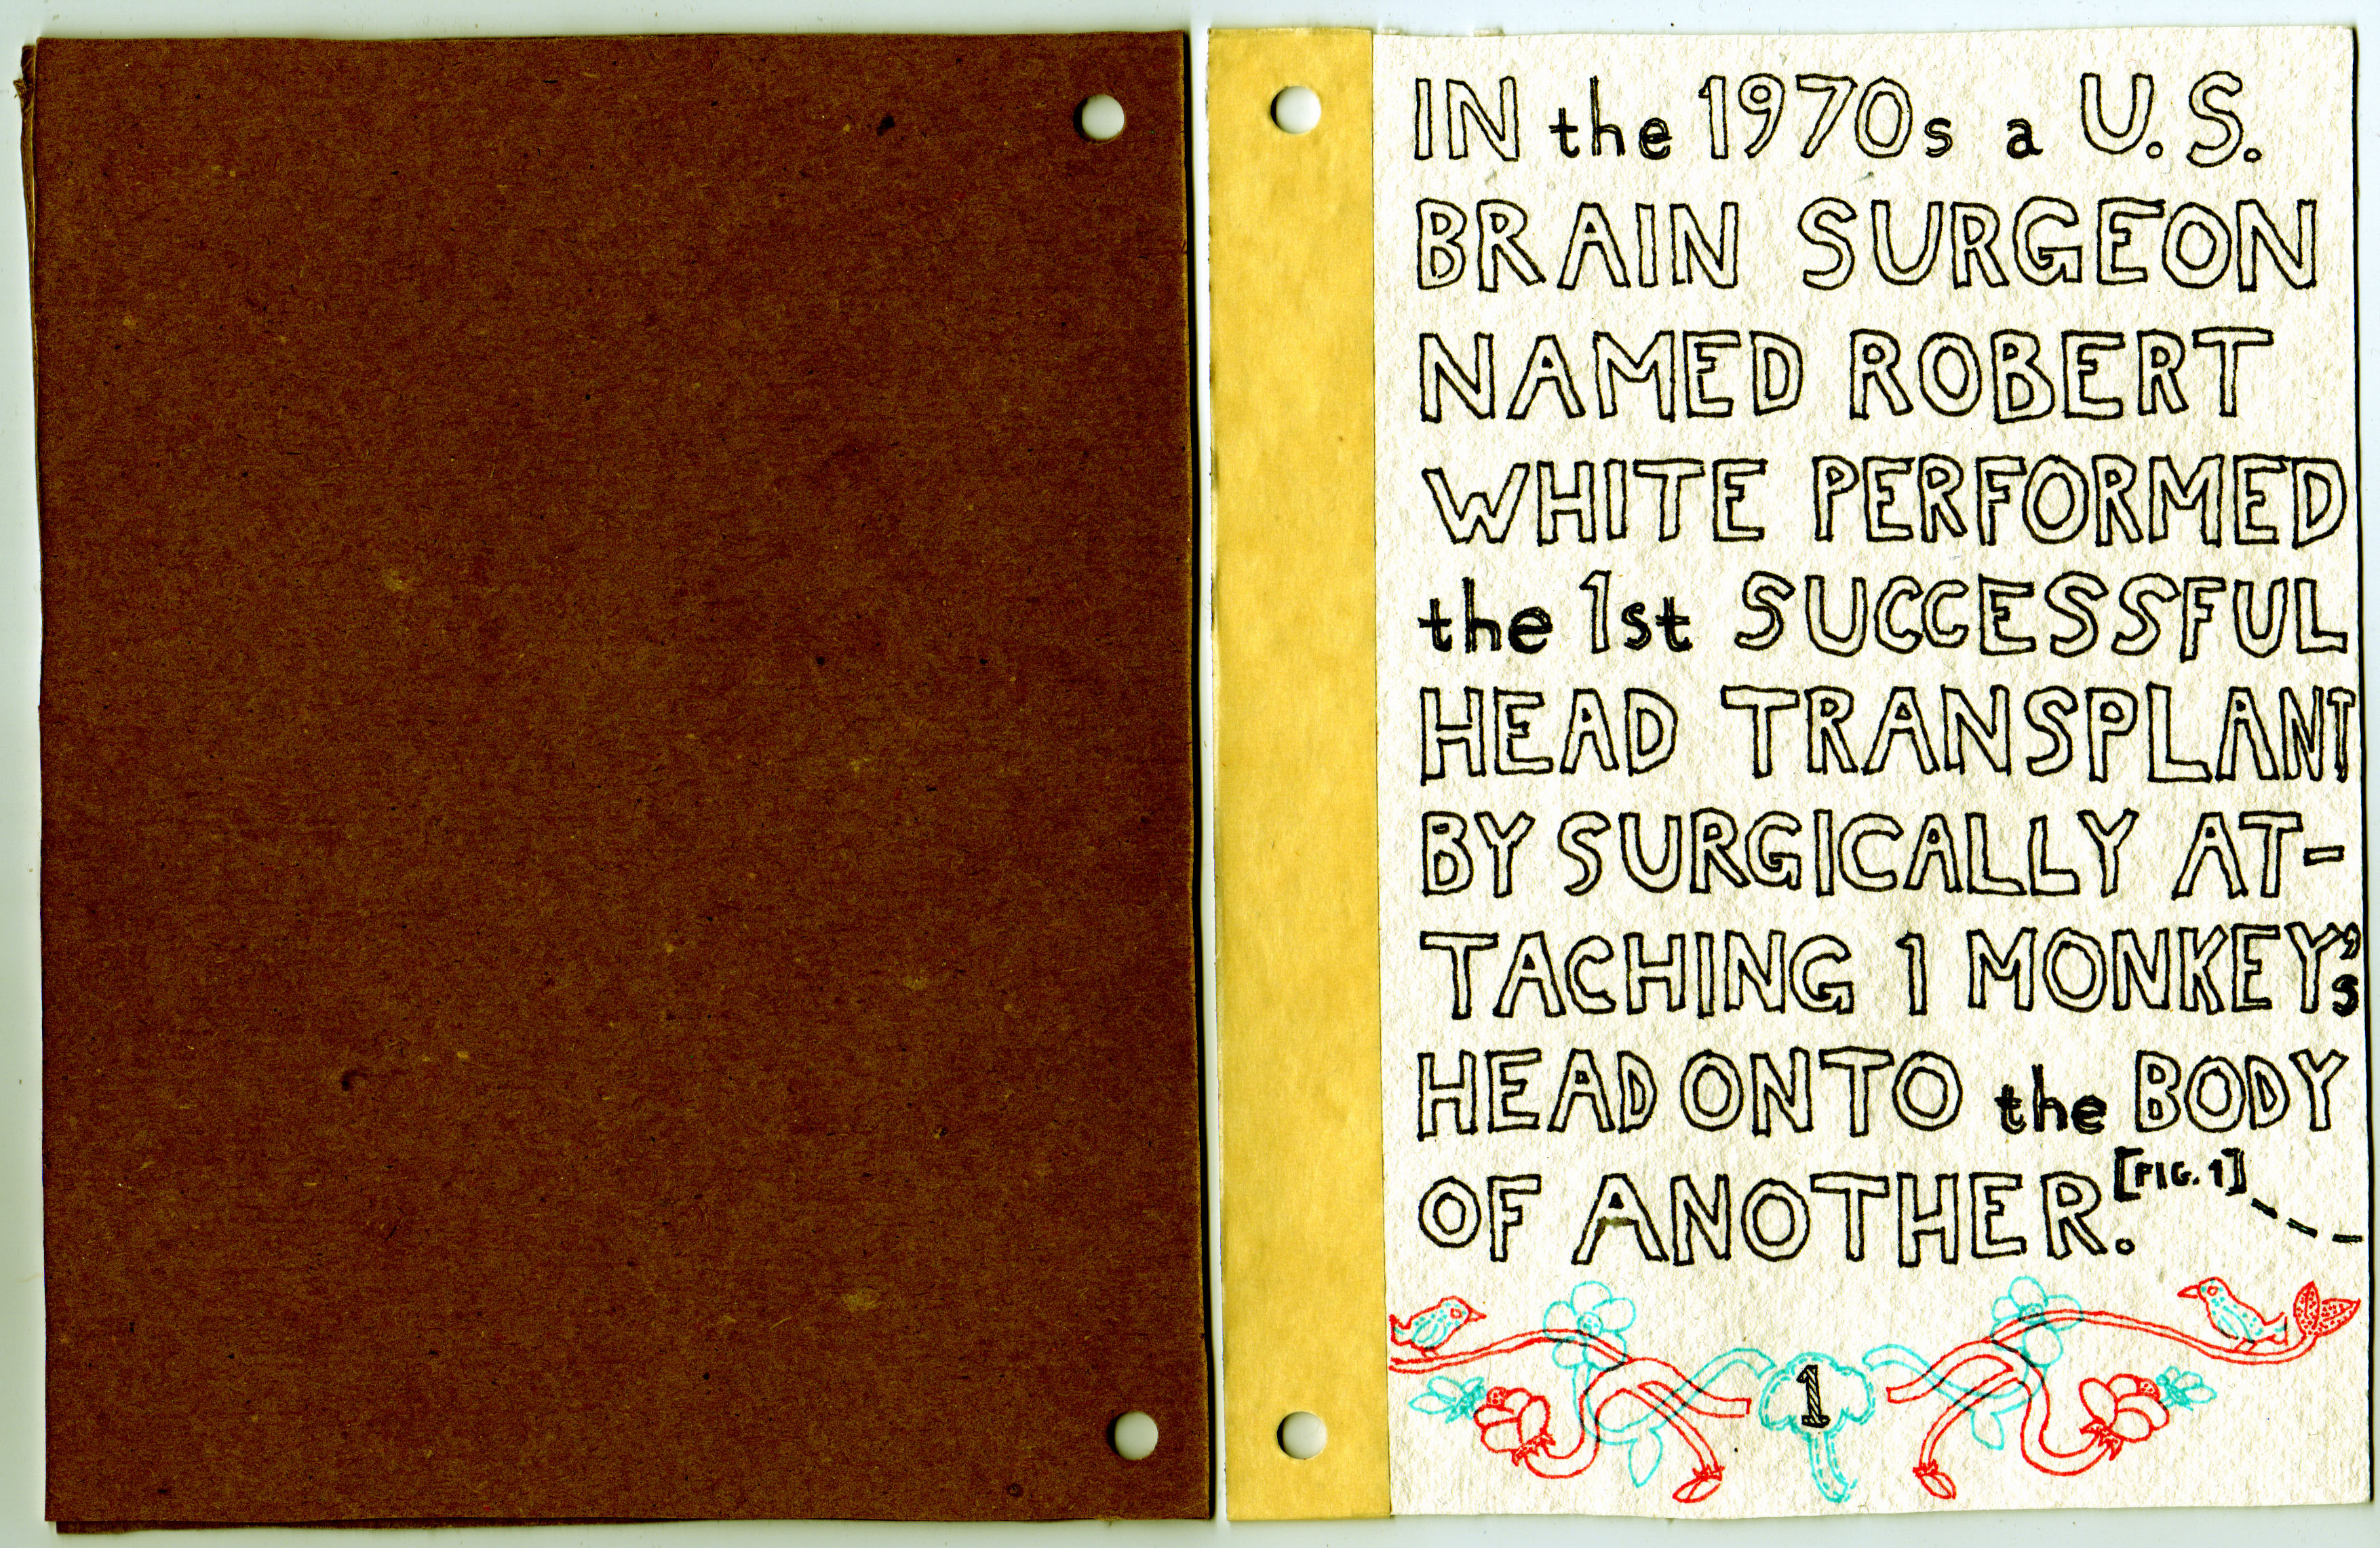 IN the 1970s a U.S.
BRAIN SURGEON
NAMED ROBERT
WHITE PERFORMED
the 1st SUCCESSFUL
HEAD TRANSPLANT
BY SURGICALLY AT-
TACHING 1 MONKEY's
HEAD ONTO the BODY
OF ANOTHER. [FIG. 1]
1